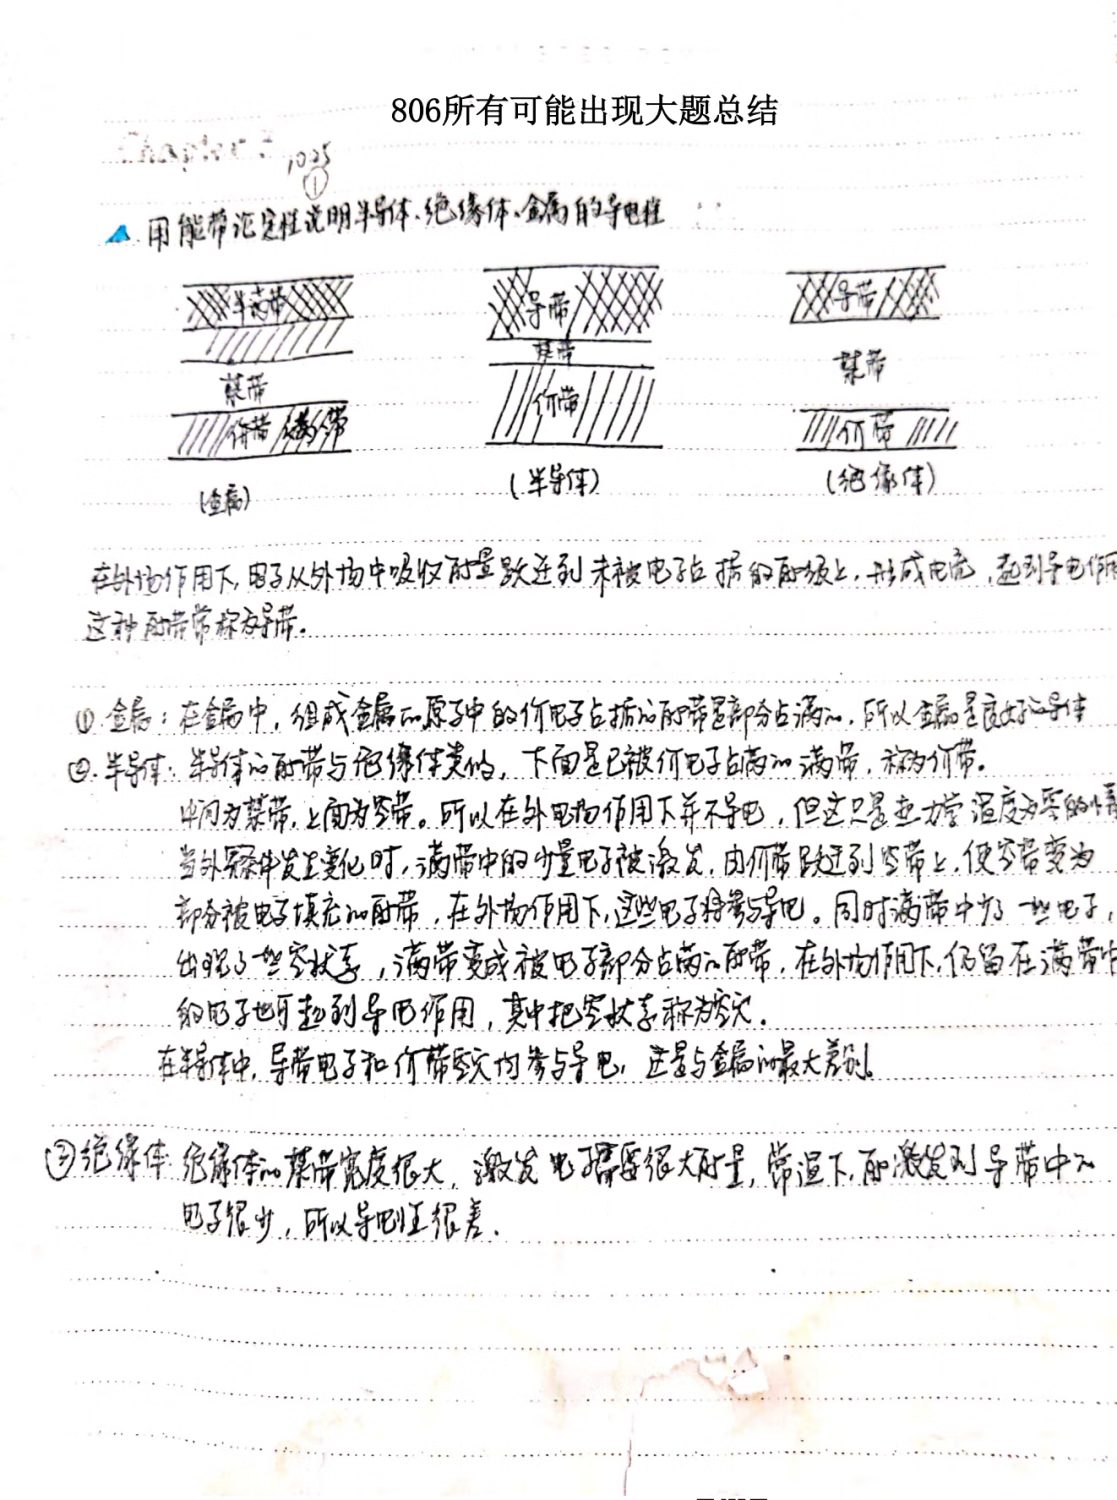 806所有可能出现大题总结
1025
①
用能带论定性说明半导体、绝缘体、金属的导电性
半满带 导带 导带
禁带 禁带 禁带
价带(满带 价带 价带
(金属) (半导体) (绝缘体)
在外场作用下,电子从外场中吸收能量跃迁到未被电子占据的能级上,形成电流,起到导电作用
这种能带常称为导带。
①.金属:在金属中,组成金属的原子中的价电子占据的能带是部分占满的,所以金属是良好的导体
②.半导体:半导体的能带与绝缘体类似,下面是已被价电子占满的满带,称为价带。
中间为禁带,上面为空带。所以在外电场作用下并不导电,但这只是热力学温度为零的情
当外界条件发生变化时,满带中的少量电子被激发,由价带跃迁到空带上,使空带变为
部分被电子填充的能带,在外场作用下,这些电子将参与导电。同时满带中少了一些电子,
出现了一些空状态,满带变成被电子部分占满的能带,在外场作用下,仍留在满带中
的电子也可起到导电作用,其中把空状态称为空穴.
在半导体中,导带电子和价带空穴均参与导电,这是与金属的最大差别。
③绝缘体:绝缘体的禁带宽度很大,激发电子需要很大能量,常温下,能激发到导带中的
电子很少,所以导电性很差.